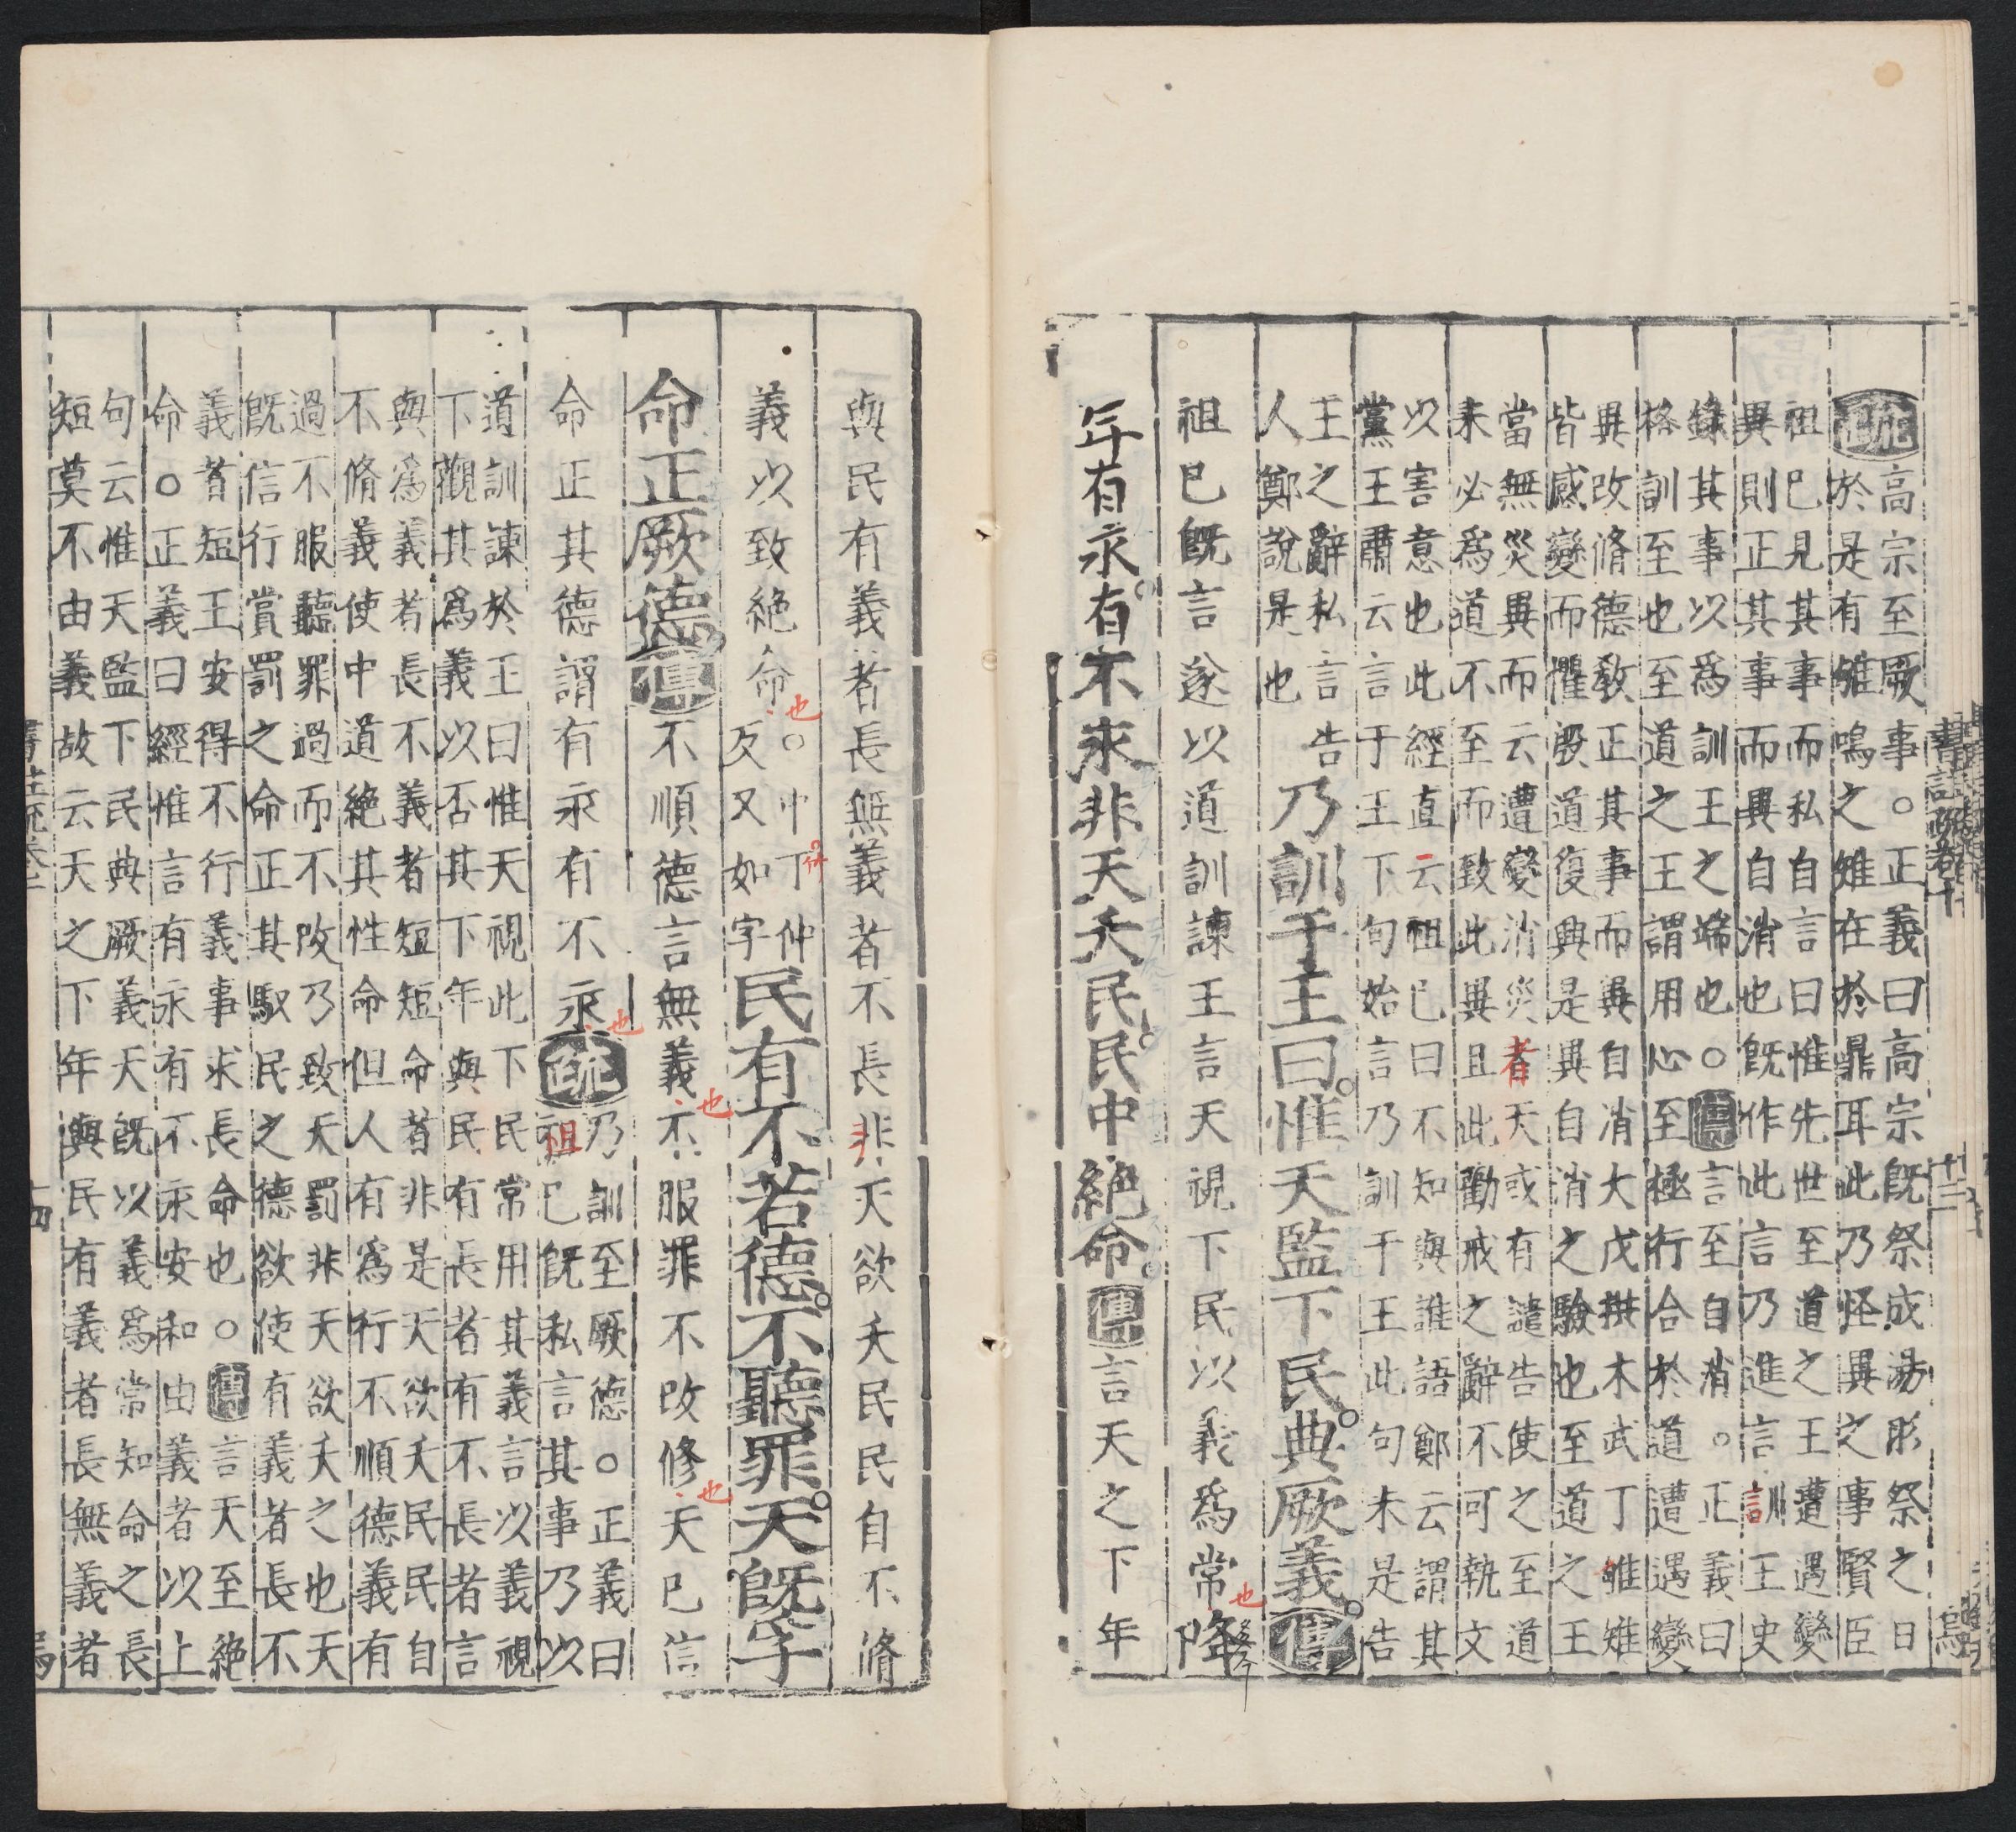 書註疏卷十
十三
疏高宗至厥事○正義曰高宗既祭成湯肜祭之日
於是有雊鳴之雉在於鼎耳此乃怪異之事賢臣
祖巳見其事而私自言曰惟先世至道之王遭遇變
異則正其事而異自消也既作此言乃進言訓王史
錄其事以為訓王之端也○傳言至自消○正義曰
格訓至也至道之王謂用心至極行合於道遭遇變
異改脩德教正其事而異自消大戊拱木武丁雊雉
皆感變而懼殷道復興是異自消之驗也至道之王
當無災異而云遭變消災者天或有譴告使之至道
未必為道不至而致此異且此勸戒之辭不可執文
以害意也此經直云祖巳曰不知與誰語鄭云謂其
黨王肅云言于王下句始言乃訓于王此句未是告
王之辭私言告
人鄭說是也
乃訓于王曰惟天監下民典厥義傳
祖巳既言遂以道訓諫王言天視下民以義為常也降
年有永有不永非天夭民民中絕命傳言天之下年
與民有義者長無義者不長非天欲夭民民自不脩
義以致絕命也○中丁仲
反又如字
民有不若德不聽罪天既孚
命正厥德傳不順德言無義也不服罪不改修也天已信
命正其德謂有永有不永也疏乃訓至厥德○正義曰
祖巳既私言其事乃以
道訓諫於王曰惟天視此下民常用其義言以義視
下觀其為義以否其下年與民有長者有不長者言
與為義者長不義者短短命者非是天欲夭民民自
不脩義使中道絕其性命但人有為行不順德義有
過不服聽罪過而不改乃致天罰非天欲夭之也天
既信行賞罰之命正其馭民之德欲使有義者長不
義者短王安得不行義事求長命也○傳言天至絕
命○正義曰經惟言有永有不永安和由義者以上
句云惟天監下民典厥義天既以義為常知命之長
短莫不由義故云天之下年與民有義者長無義者